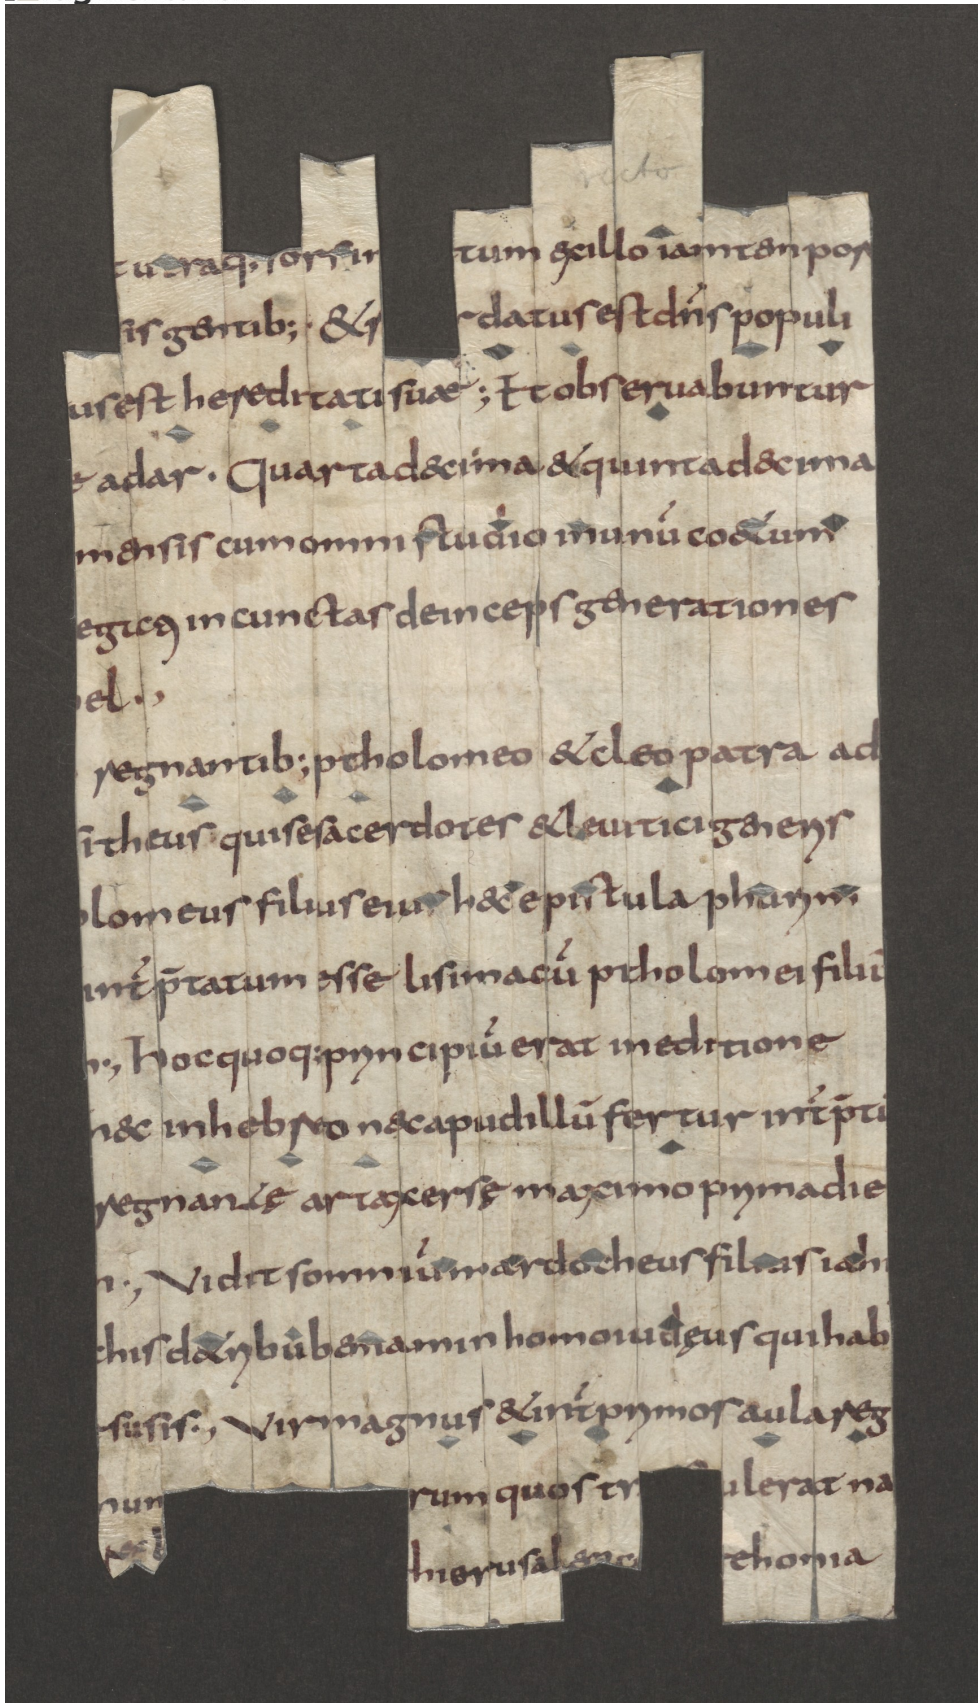 recto
utraq; sors in tum & ex illo iam tempor
is gentib; & r datus est dn̄s populi
us est hereditati suae; Et obseruabuntur
e adar. Quartadecima & quintadecima
mensis cum omni studio inunū coetum
egreg in cunctas deinceps generationes
el.,
regnantib; ptholomeo & cleopatra ad
sitheus qui se sacerdotes & leuitici generis
olomeus filius eius h& epistula phurim
int̄ p̄tatum esse lisimacū ptholomei filiū
n., Hoc quoq: principiū erat in editione
nec in hebreo nec apud illū fertur int̄p̄ti
regnante artaxerse maximo prima die
n., Vidit somniū mardocheus filius iairi
chis de tribu beniamin homo iudęus qui hab
susis., Vir magnus & int̄ primos aulareg
num rum quos tr ulerat na
hierusal iehonia